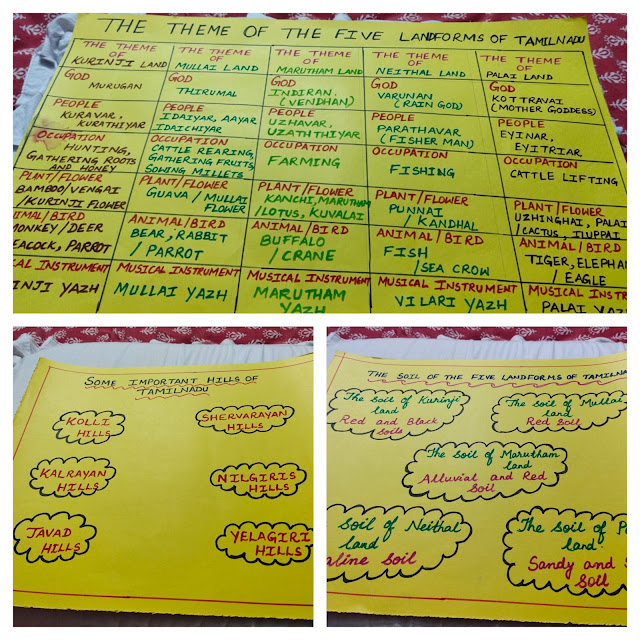 THE THEME OF THE FIVE LANDFORMS OF TAMILNADU
THE THEME
OF
KURINJI LAND
THE THEME
OF
MULLAI LAND
THE THEME
OF
MARUTHAM LAND
THE THEME
OF
NEITHAL LAND
THE THEME
OF
PALAI LAND
GOD
MURUGAN
GOD
THIRUMAL
GOD
INDIRAN
(VENDHAN)
GOD
VARUNAN
(RAIN GOD)
GOD
KOTTRAVAI
(MOTHER GODDESS)
PEOPLE
KURAVAR,
KURATHIYAR
PEOPLE
IDAIYAR, AAYAR
IDAICHIYAR
PEOPLE
UZHAVAR,
UZATHTHIYAR
PEOPLE
PARATHAVAR
(FISHER MAN)
PEOPLE
EYINAR,
EYITRIAR
OCCUPATION
HUNTING,
GATHERING ROOTS
AND HONEY
OCCUPATION
CATTLE REARING,
GATHERING FRUITS,
SOWING MILLETS
OCCUPATION
FARMING
OCCUPATION
FISHING
OCCUPATION
CATTLE LIFTING
PLANT/FLOWER
BAMBOO/VENGAI
/KURINJI FLOWER
PLANT/FLOWER
GUAVA / MULLAI
FLOWER
PLANT/FLOWER
KANCHI, MARUTHAM
/LOTUS, KUVALAI
PLANT/FLOWER
PUNNAI
/KANDHAL
PLANT/FLOWER
UZHINGHAI, PALAI
/CACTUS, ILUPPAI
IMAL/BIRD
ONKEY/DEER
EACOCK, PARROT
ANIMAL/BIRD
BEAR, RABBIT
/PARROT
ANIMAL/BIRD
BUFFALO
/CRANE
ANIMAL/BIRD
FISH
/SEA CROW
ANIMAL/BIRD
TIGER, ELEPHA
/EAGLE
CAL INSTRUMENT
INJI YAZH
MUSICAL INSTRUMENT
MULLAI YAZH
MUSICAL INSTRUMENT
MARUTHAM
YAZH
MUSICAL INSTRUMENT
VILARI YAZH
MUSICAL INSTR
PALAI YAZ
SOME IMPORTANT HILLS OF
TAMILNADU
KOLLI
HILLS
SHERVARAYAN
HILLS
KALRAYAN
HILLS
NILGIRIS
HILLS
JAVAD
HILLS
YELAGIRI
HILLS
THE SOIL OF THE FIVE LANDFORMS OF TAMILNA
The soil of Kurinji
land
Red and Black
soils
The soil of Mullai
land
Red Soil
The soil of Marutham
land
Alluvial and Red
Soil
soil of Neithal
land
aline soil
The soil of P
land
Sandy and S
Soil